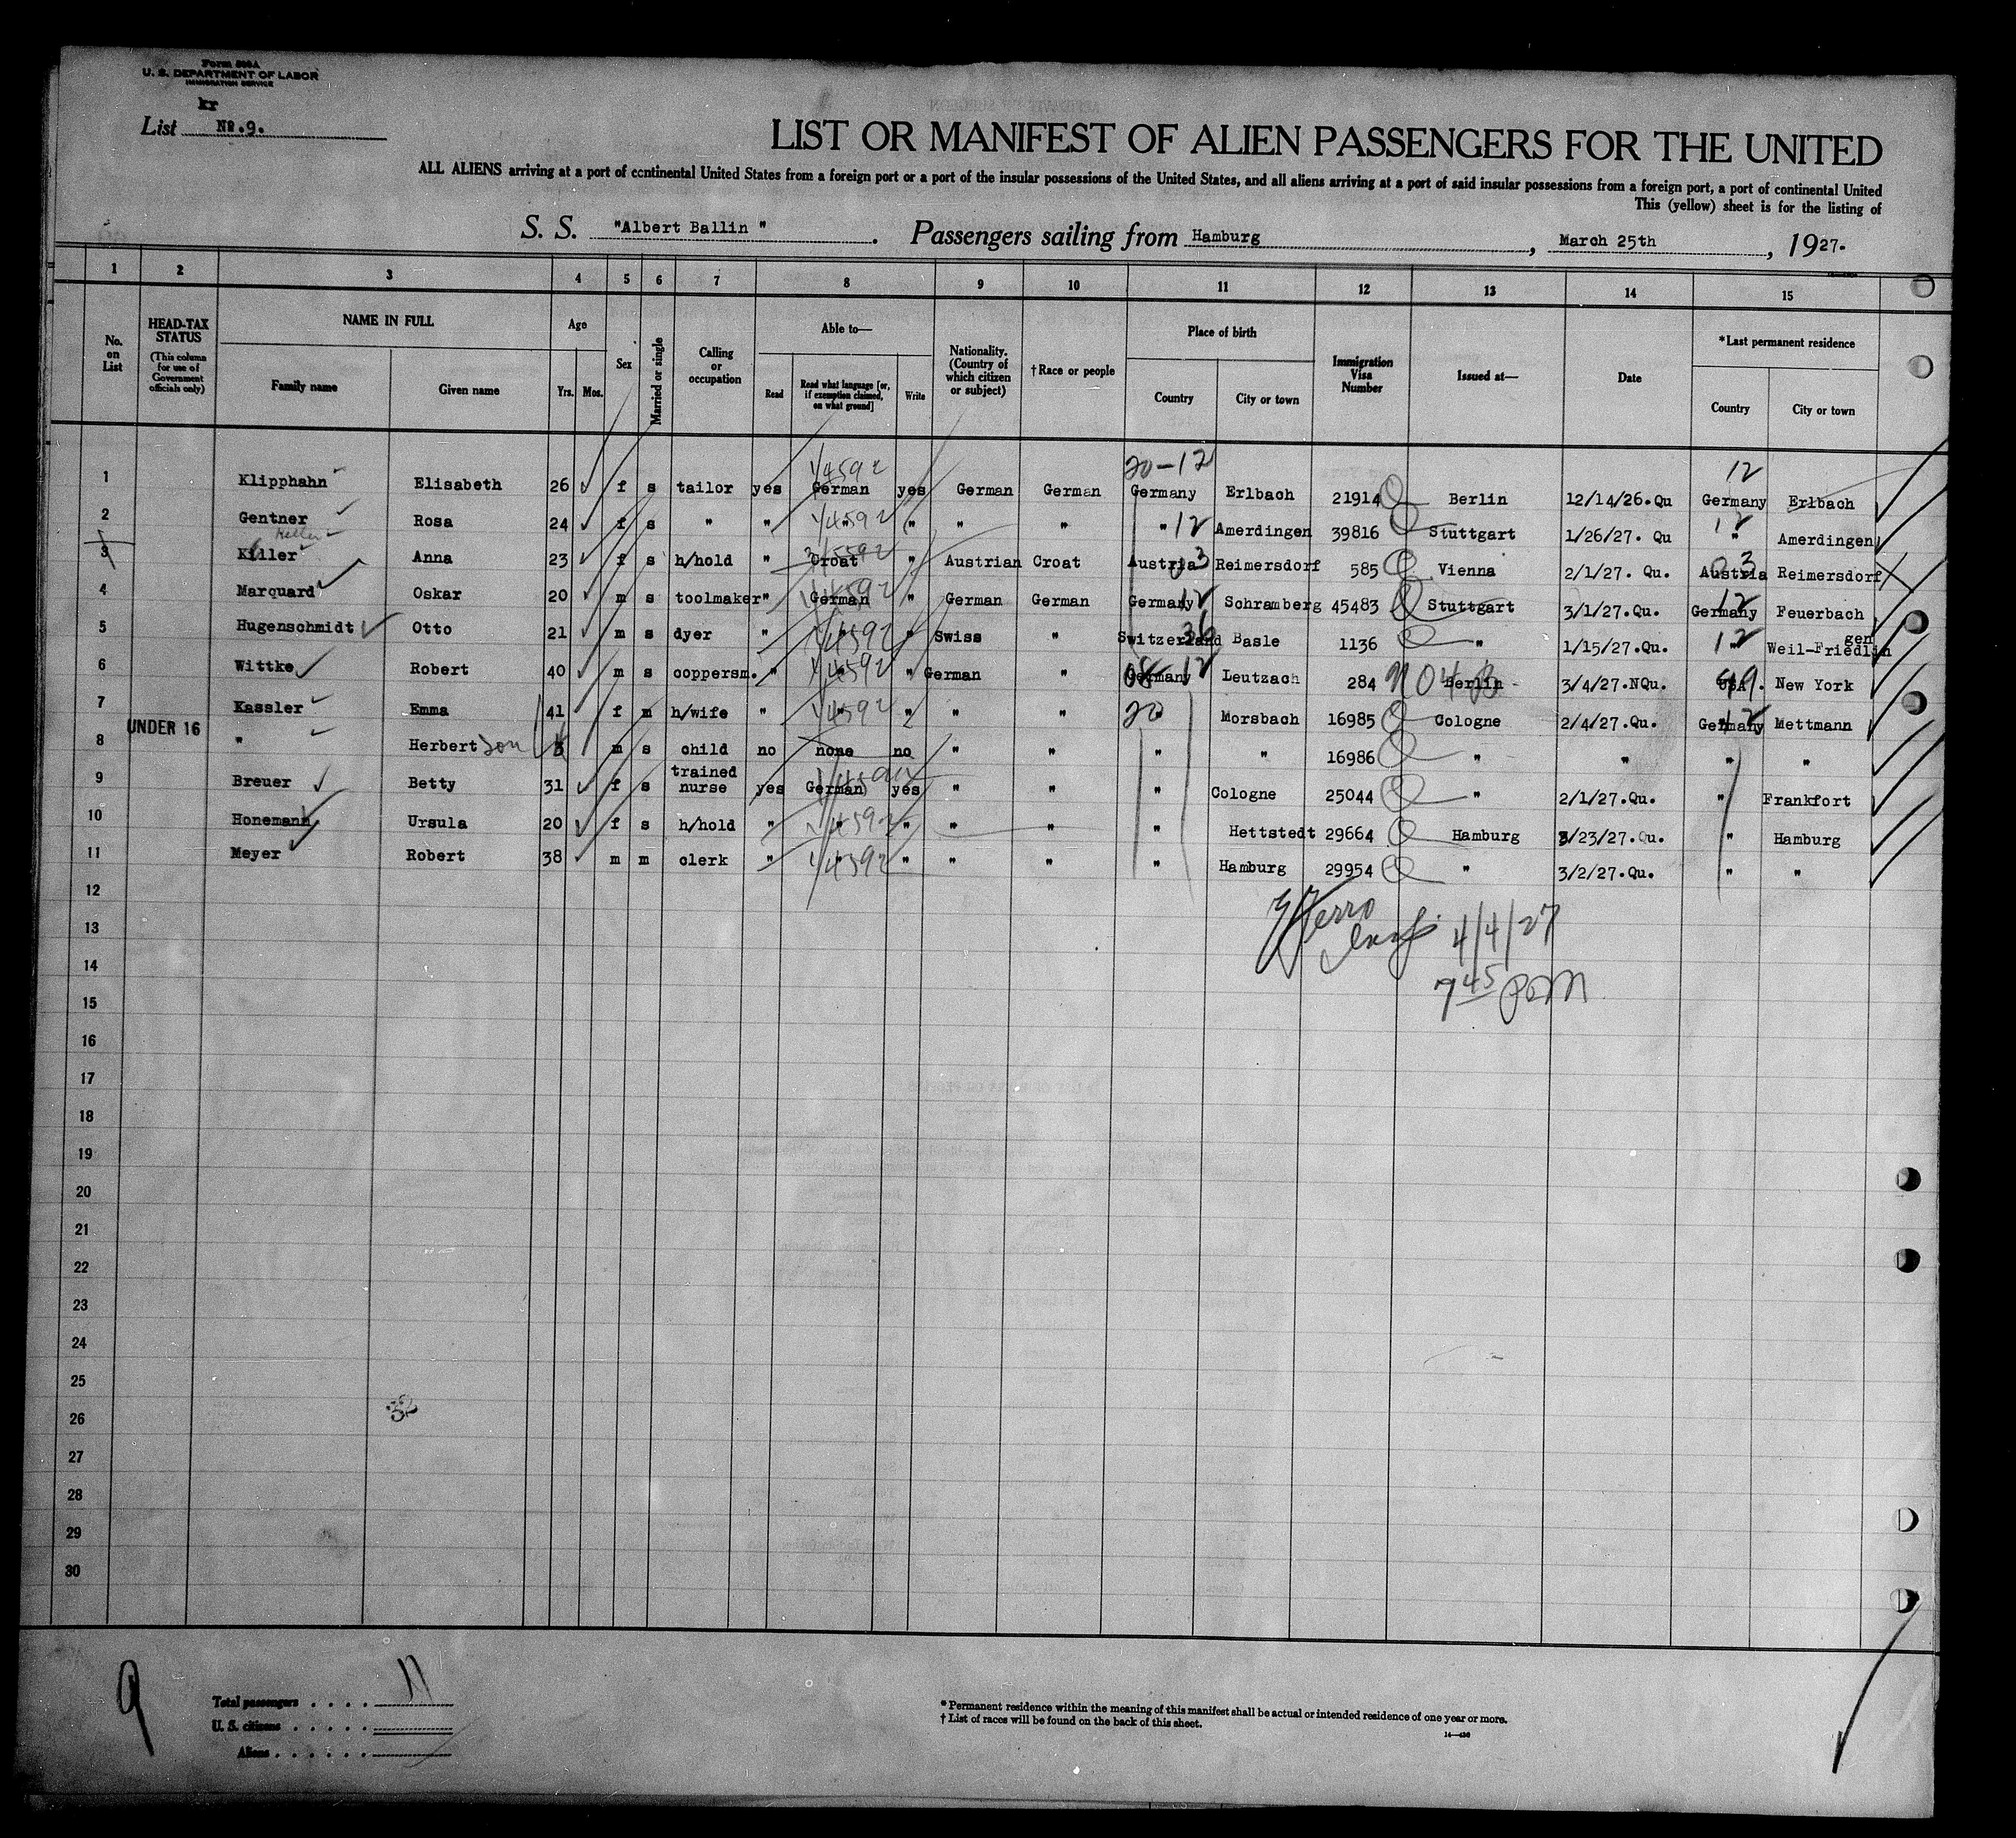 Form 500A
U. S. DEPARTMENT OF LABOR
IMMIGRATION SERVICE
kr
List No.9.
LIST OR MANIFEST OF ALIEN PASSENGERS FOR THE UNITED
ALL ALIENS arriving at a port of continental United States from a foreign port or a port of the insular possessions of the United States, and all aliens arriving at a port of said insular possessions from a foreign port, a port of continental United
This (yellow) sheet is for the listing of
S. S. "Albert Ballin ". Passengers sailing from Hamburg, March 25th, 1927.
1 2 3 4 5 6 7 8 9 10 11 12 13 14 15
No. on List
HEAD-TAX STATUS (This column for use of Government officials only)
NAME IN FULL
Family name Given name
Age
Yrs. Mos.
Sex
Married or single
Calling or occupation
Able to—
Read Read what language [or, if exemption claimed, on what ground] Write
Nationality. (Country of which citizen or subject)
†Race or people
Place of birth
Country City or town
Immigration Visa Number
Issued at—
Date
*Last permanent residence
Country City or town
14592 20-12 12
1 Klipphahn Elisabeth 26 f s tailor yes German yes German German Germany Erlbach 21914 Berlin 12/14/26.Qu Germany Erlbach
2 Gentner Rosa 24 f s " " " 14592 " " " " 12 Amerdingen 39816 Stuttgart 1/26/27. Qu 12 " Amerdingen
Keller
3 Killer Anna 23 f s h/hold " Croat " Austrian Croat Austria 03 Reimersdorf 585 Vienna 2/1/27. Qu. Austria 03 Reimersdorf
4 Marquard Oskar 20 m s toolmaker " German 14592 " German German Germany 12 Schramberg 45483 Stuttgart 3/1/27.Qu. Germany 12 Feuerbach
5 Hugenschmidt Otto 21 m s dyer " " 14592 " Swiss " Switzerland 36 Basle 1136 " 1/15/27.Qu. " 12 Weil-Friedlingen
6 Wittke Robert 40 m s coppersm. " " 14592 " German " Germany 12 Leutzach 284 Berlin 3/4/27.NQu. USA. 99 New York
7 Kassler Emma 41 f m h/wife " " 14592 " " " " 20 Morsbach 16985 Cologne 2/4/27.Qu. Germany 12 Mettmann
UNDER 16
8 " Herbert son m s child no none no " " " " 16986 " " " "
9 Breuer Betty 31 f s trained nurse yes German yes " " " Cologne 25044 " 2/1/27.Qu. " Frankfort
10 Honemann Ursula 20 f s h/hold " " 14592 " " " " Hettstedt 29664 Hamburg 3/23/27.Qu. " Hamburg
11 Meyer Robert 38 m m clerk " " 14592 " " " " Hamburg 29954 " 3/2/27.Qu. " "
12
13
4/4/27
14
7 45 PM
15
16
17
18
19
20
21
22
23
24
25
26
32
27
28
29
30
9
Total passengers . . . . 11
U. S. citizens . . . . .
Aliens . . . . . .
* Permanent residence within the meaning of this manifest shall be actual or intended residence of one year or more.
† List of races will be found on the back of this sheet.
14—430